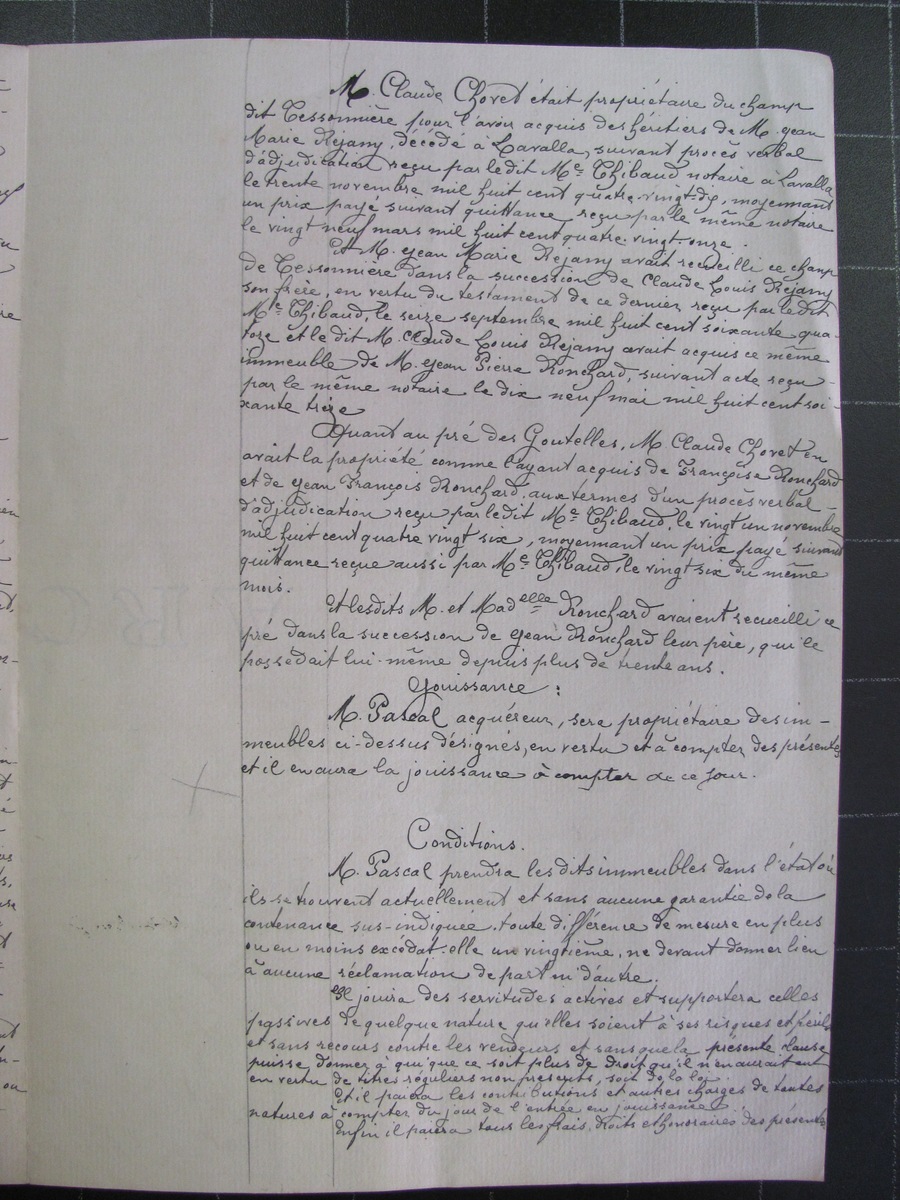 M. Claude Chovet était propriétaire du champ
dit Cessonnière pour l'avoir acquis des héritiers de M. Jean
Marie Réjany, décédé à Lavalla, suivant procès verbal
d'adjudication reçu par ledit Me Thibaud notaire à Lavalla
le trente novembre mil huit cent quatre-vingt-dix, moyennant
un prix payé suivant quittance reçue par le même notaire
le vingt neuf mars mil huit cent quatre-vingt-onze.
Et M. Jean Marie Rejany avait recueilli ce champ
de Cessonnière dans la succession de Claude Louis Rejany
son frère, en vertu du testament de ce dernier reçu par ledit
Me Thibaud, le seize septembre mil huit cent soixante qua-
torze et le dit M. Claude Louis Rejany avait acquis ce même
immeuble de M. Jean Pierre Ronchard, suivant acte reçu
par le même notaire le dix neuf mai mil huit cent soi-
xante treize
Quant au pré des Goutelles, M. Claude Chovet en
avait la propriété comme l'ayant acquis de Françoise Ronchard
et de Jean François Ronchard, aux termes d'un procès verbal
d'adjudication reçu par ledit Me Thibaud, le vingt un novembre
mil huit cent quatre vingt six, moyennant un prix payé suivant
quittance reçue aussi par Me Thibaud, le vingt six du même
mois.
Et lesdits M. et Madelle Ronchard avaient recueilli ce
pré dans la succession de Jean Ronchard leur père, qui le
possédait lui-même depuis plus de trente ans.
Jouissance :
M. Pascal acquéreur, sera propriétaire des im-
meubles ci-dessus désignés, en vertu et à compter des présentes
et il en aura la jouissance à compter de ce jour.
Conditions.
M. Pascal prendra les dits immeubles dans l'état où
ils se trouvent actuellement et sans aucune garantie de la
contenance sus-indiquée, toute différence de mesure en plus
ou en moins excédat-elle un vingtième, ne devant donner lieu
à aucune réclamation de part ni d'autre.
Il jouira des servitudes actives et supportera celles
passives de quelque nature qu'elles soient à ses risques et périls
et sans recours contre les vendeurs et sans que la présente clause
puisse donner à qui que ce soit plus de droit qu'il n'en aurait eut
en vertu de titres réguliers non prescrits, soit de la loi.
Et il paiera les contributions et autres charges de toutes
natures à compter du jour de l'entrée en jouissance.
Enfin il paiera tous les frais, droits et honoraires des présentes